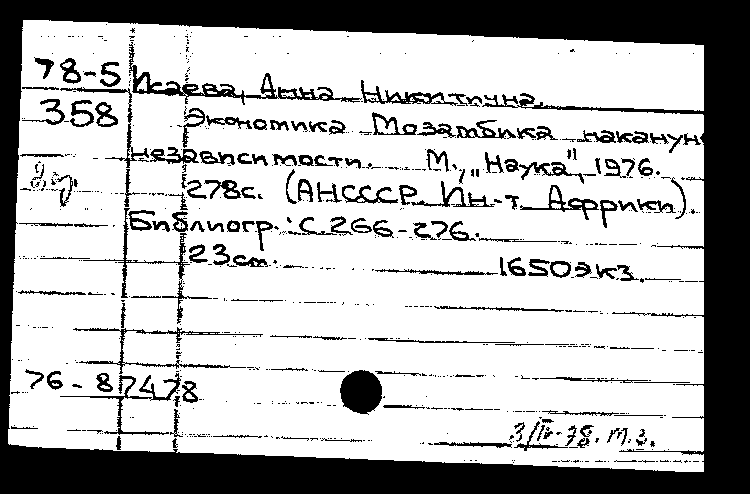 78-5 Исаева, Анна Никитична.
358 Экономика Мозамбика накануне
независимости. М., „Наука", 1976.
278с. (АНСССР. Ин-т. Африки).
Библиогр.: С. 266-276.
23см. 1650экз.
76-87478
3/IV-78. т.з.